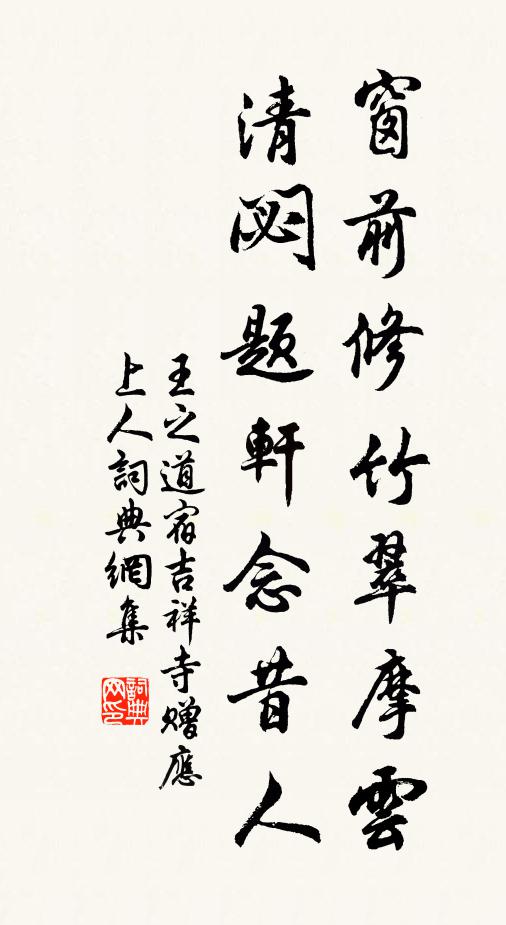 窗前修竹翠摩雲
清閟題軒念昔人
王之道宿吉祥寺贈應
上人詞典網集
詞典
网印